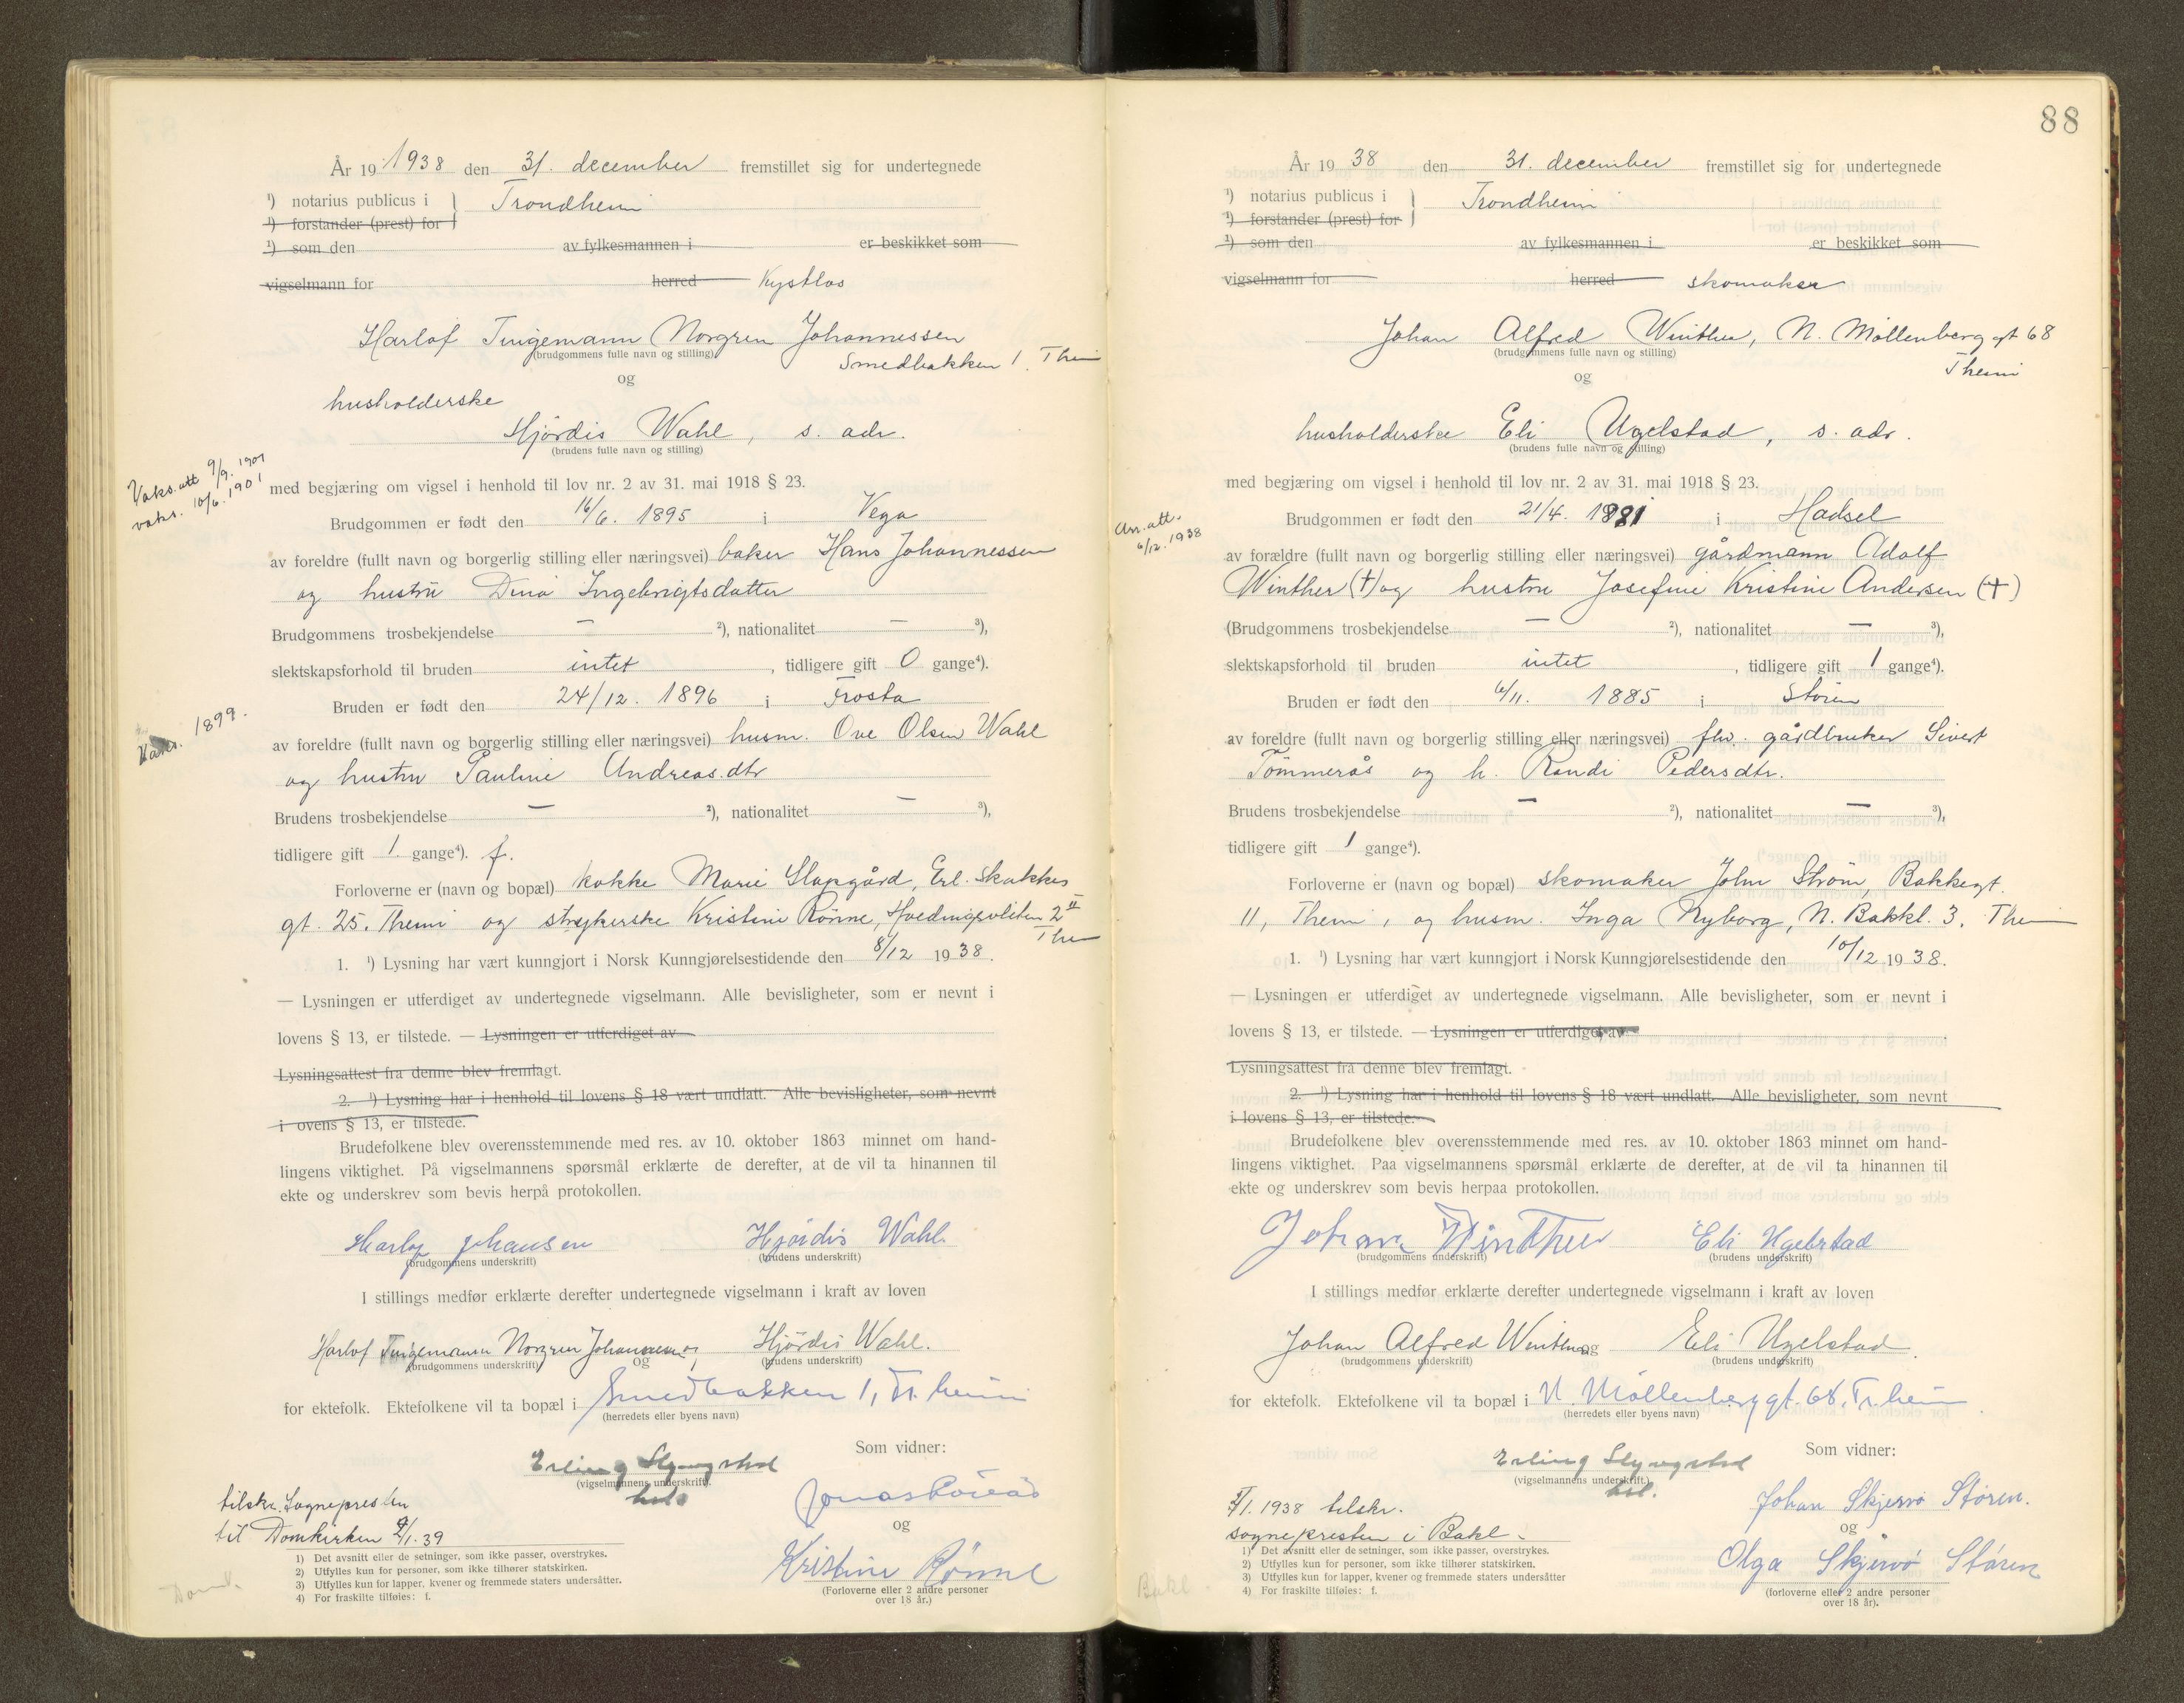 År 19 1938 den 31. december fremstillet sig for undertegnede
¹) notarius publicus i } Trondheim
¹) forstander (prest) for
¹) som den av fylkesmannen i er beskikket som
vigselmann for herred Kystlos
Harlof Tingemann Norgren Johannessen
(brudgommens fulle navn og stilling) Smedbakken 1. Thm
og
husholderske
Hjördis Wahl, s. adr.
(brudens fulle navn og stilling)
Vaks.att 9/9. 1901
vaks. 10/6. 1901
med begjæring om vigsel i henhold til lov nr. 2 av 31. mai 1918 § 23.
Brudgommen er født den 16/6. 1895 i Vega
av foreldre (fullt navn og borgerlig stilling eller næringsvei) baker Hans Johannessen
og hustru Dina Ingebrigtsdatter
Brudgommens trosbekjendelse — ²), nationalitet — ³),
slektskapsforhold til bruden intet, tidligere gift 0 gange⁴).
Bruden er født den 24/12. 1896 i Frosta
Vaks. 1899.
av foreldre (fullt navn og borgerlig stilling eller næringsvei) husm. Ove Olsen Wahl
og hustru Pauline Andreas.dtr
Brudens trosbekjendelse — ²), nationalitet — ³),
tidligere gift 1. gange⁴). f.
Forloverne er (navn og bopæl) kokke Marie Slapgård, Erl. Skakkes
gt. 25. Theim og strykerske Kristine Rönne, 2 II
Thm
1. ¹) Lysning har vært kunngjort i Norsk Kunngjørelsestidende den 8/12 1938.
— Lysningen er utferdiget av undertegnede vigselmann. Alle bevisligheter, som er nevnt i
lovens § 13, er tilstede. — Lysningen er utferdiget av
Lysningsattest fra denne blev fremlagt.
2. ¹) Lysning har i henhold til lovens § 18 vært undlatt. Alle bevisligheter, som nevnt
i ovens § 13, er tilstede.
Brudefolkene blev overensstemmende med res. av 10. oktober 1863 minnet om hand-
lingens viktighet. På vigselmannens spørsmål erklærte de derefter, at de vil ta hinannen til
ekte og underskrev som bevis herpå protokollen.
Harlof Johansen Hjördis Wahl.
(brudgommens underskrift) (brudens underskrift)
I stillings medfør erklærte derefter undertegnede vigselmann i kraft av loven
Harlof Tingemann Norgren Johannessen og Hjördis Wahl.
(brudgommens underskrift) og (brudens underskrift)
for ektefolk. Ektefolkene vil ta bopæl i Smedbakken 1, Tr.heim
(herredets eller byens navn)
Erling Slyngstad
(vigselmannens underskrift).
Som vidner:
Jonas
og
Kristine Rönne
(Forloverne eller 2 andre personer
over 18 år.)
tilskr. Sognepresten
til Domkirken 4/1.39
1) Det avsnitt eller de setninger, som ikke passer, overstrykes.
2) Utfylles kun for personer, som ikke tilhører statskirken.
3) Utfylles kun for lapper, kvener og fremmede staters undersåtter.
4) For fraskilte tilføies: f.
Domk.
88
År 19 38 den 31. december fremstillet sig for undertegnede
¹) notarius publicus i } Trondheim
¹) forstander (prest) for
¹) som den av fylkesmannen i er beskikket som
vigselmann for herred skomaker
Johan Alfred Winther, N. Möllenberg gt 68
(brudgommens fulle navn og stilling) Theim
og
husholderske Eli Ugelstad, s. adr.
(brudens fulle navn og stilling)
med begjæring om vigsel i henhold til lov nr. 2 av 31. mai 1918 § 23.
An.att.
6/12.1938
Brudgommen er født den 21/4. 1881 i Hadsel
av forældre (fullt navn og borgerlig stilling eller næringsvei) gårdmann Adolf
Winther (†) og hustru Josefine Kristine Andersen (†)
(Brudgommens trosbekjendelse — ²), nationalitet — ³),
slektskapsforhold til bruden intet, tidligere gift 1 gange⁴).
Bruden er født den 6/11. 1885 i Stören
av foreldre (fullt navn og borgerlig stilling eller næringsvei) fhv. gårdbruker Sivert
Tömmerås og h. Randi Pedersdtr.
Brudens trosbekjendelse — ²), nationalitet — ³),
tidligere gift 1 gange⁴).
Forloverne er (navn og bopæl) skomaker John Ström, Bakkegt.
11, Theim, og husm. Inga Nyborg, N. Bakkl. 3. Thm
1. ¹) Lysning har vært kunngjort i Norsk Kunngjørelsestidende den 10/12 1938.
— Lysningen er utferdiget av undertegnede vigselmann. Alle bevisligheter, som er nevnt i
lovens § 13, er tilstede. — Lysningen er utferdiget av
Lysningsattest fra denne blev fremlagt.
2. ¹) Lysning har i henhold til lovens § 18 vært undlatt. Alle bevisligheter, som nevnt
i lovens § 13, er tilstede.
Brudefolkene blev overensstemmende med res. av 10. oktober 1863 minnet om hand-
lingens viktighet. Paa vigselmannens spørsmål erklærte de derefter, at de vil ta hinannen til
ekte og underskrev som bevis herpaa protokollen.
Johan Winther Eli Ugelstad
(brudgommens underskrift) (brudens underskrift)
I stillings medfør erklærte derefter undertegnede vigselmann i kraft av loven
Johan Alfred Winther og Eli Ugelstad.
(brudgommens underskrift) (brudens underskrift)
for ektefolk. Ektefolkene vil ta bopæl i N. Möllenberg gt. 68, Tr.heim
(herredets eller byens navn)
Erling Slyngstad
(vigselmannens underskrift.)
Som vidner:
Johan Skjervö Stören.
og
Olga Skjervö Stören
(forloverne eller 2 andre personer
over 18 år).
/1. 1938 tilskr.
sognepresten i Bakl.
1) Det avsnitt eller de setninger, som ikke passer, overstrykes.
2) Utfylles kun for personer, som ikke tilhører statskirken.
3) Utfylles kun for lapper, kvener og fremmede staters undersåtter
4) For fraskilte tilføies: f.
Bakl